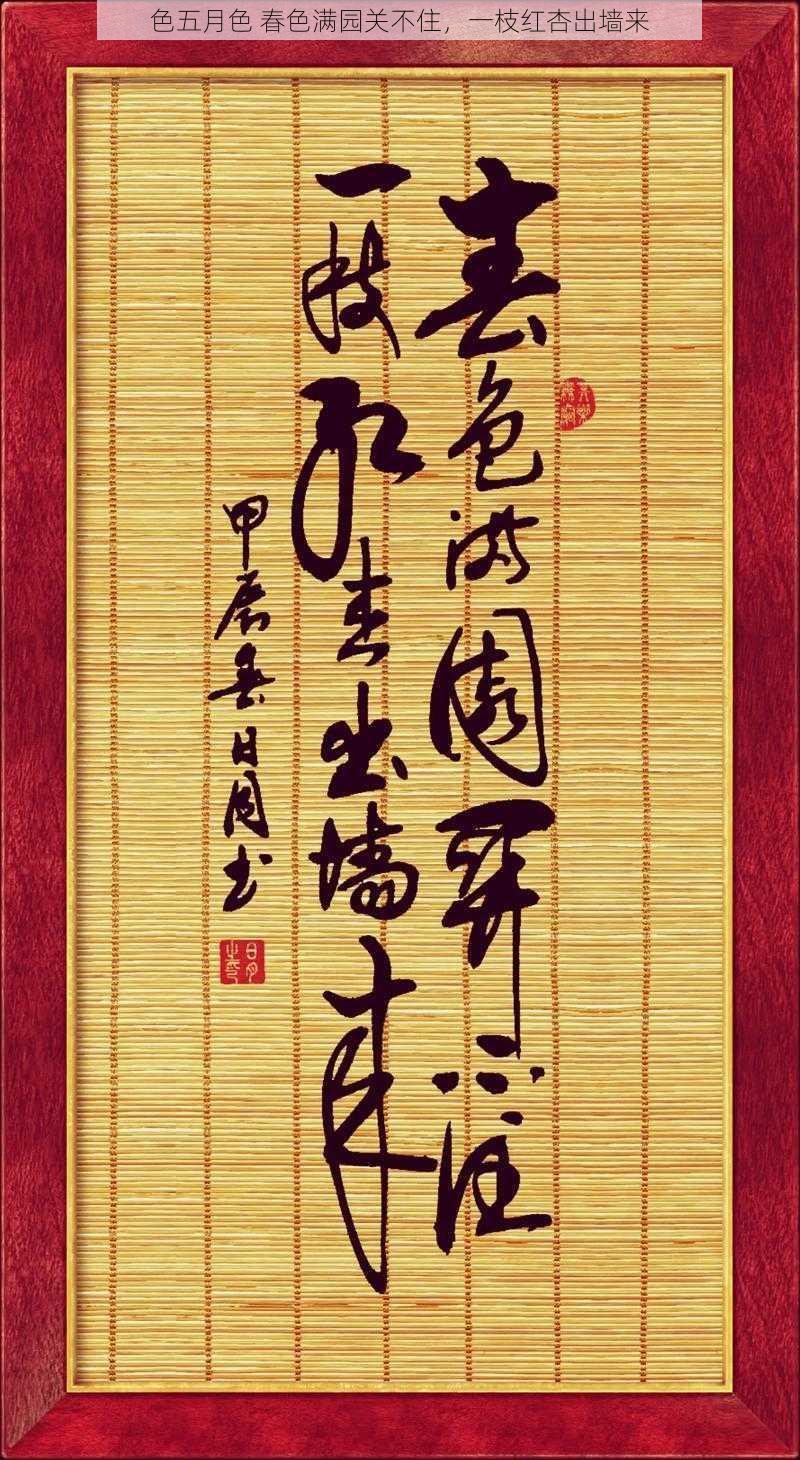 色五月色 春色满园关不住，一枝红杏出墙来
春色满园关不住
一枝红杏出墙来
甲辰春日月书